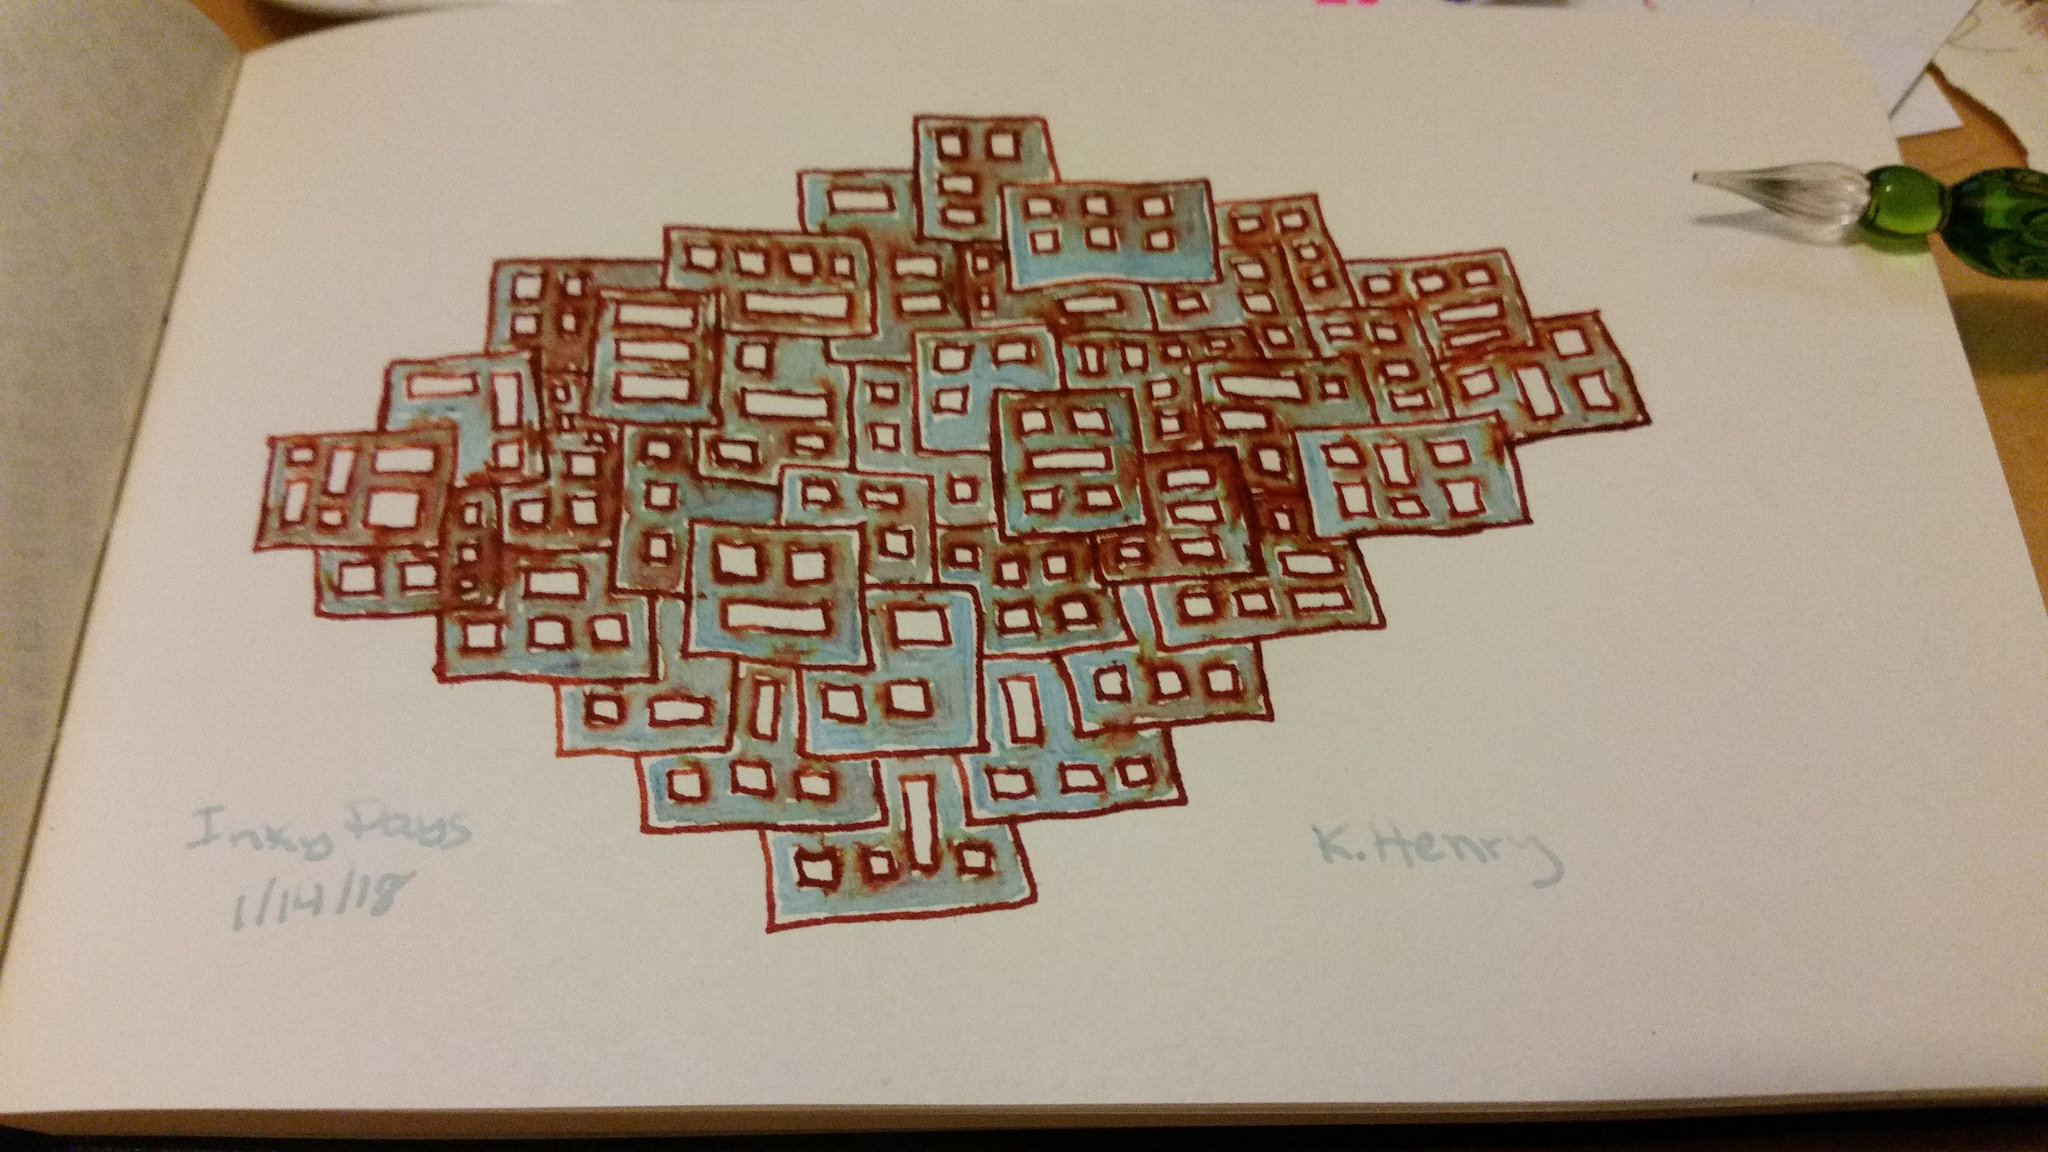 Inky Days
1/14/18
K. Henry